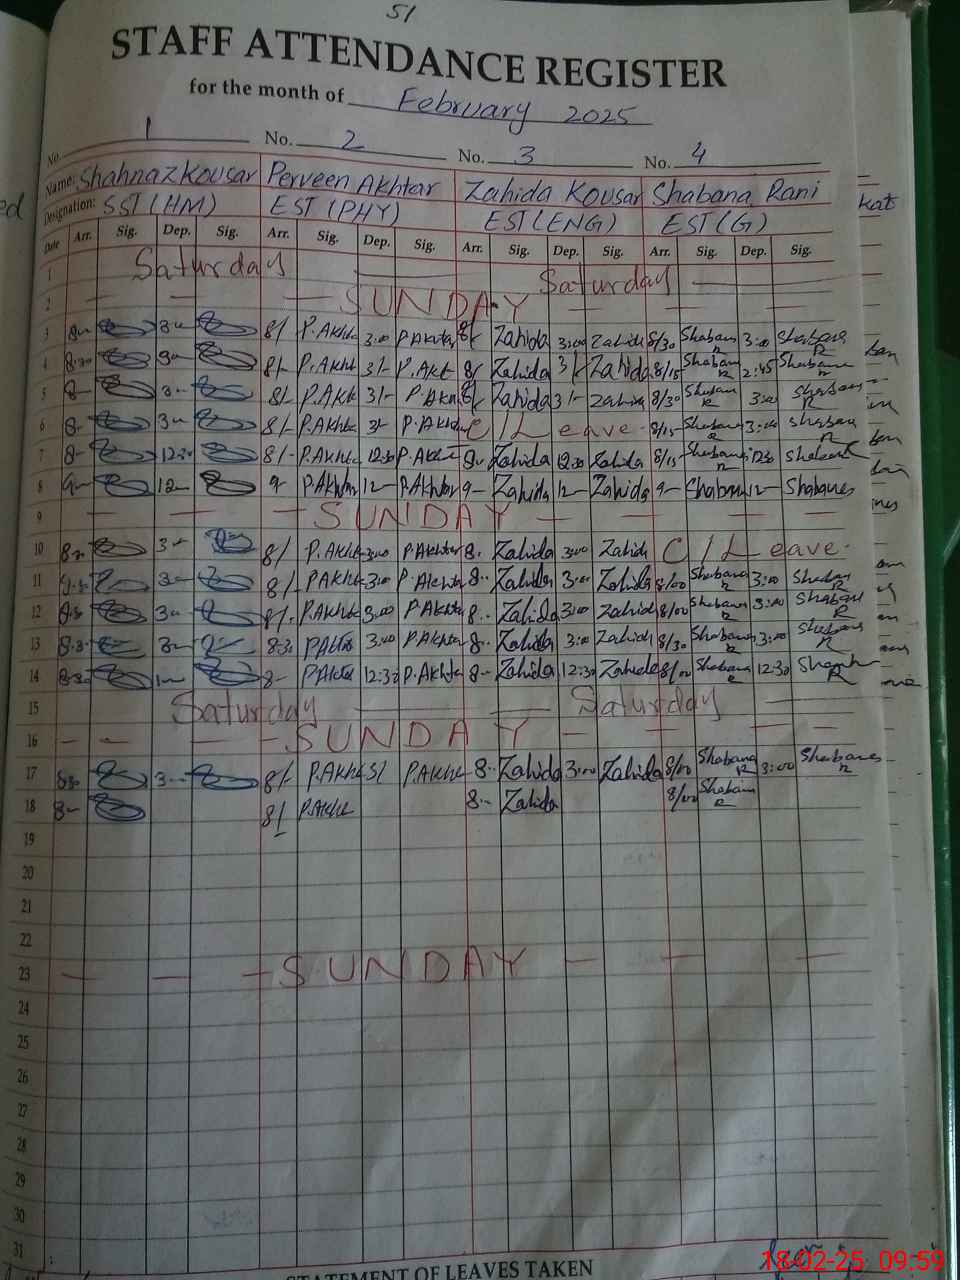 51
STAFF ATTENDANCE REGISTER
for the month of February 2025
No. 1 No. 2 No. 3 No. 4
Name: Shahnaz Kousar Perveen Akhtar Zahida Kousar Shabana Rani
Designation: SST (HM) EST (PHY) EST (ENG) EST (G)
Date Arr. Sig. Dep. Sig. Arr. Sig. Dep. Sig. Arr. Sig. Dep. Sig. Arr. Sig. Dep. Sig.
1 Saturday Saturday
2 SUNDAY
3 8/ P.Akhta 3:00 P.Akhtar 8/ Zahida 3:00 Zahida 8/30 Shabana R 3:00 Shabana R
4 8:30 8/- P.Akht 3/- P.Akt 8/ Zahida 3/ Zahida 8/15 Shabana R 2:45 Shabana R
5 8- 8/- P.Akt 3/- 8/ Zahida 3/- Zahida 8/30 Shabana R 3:00 Shaban R
6 8- 8/- P.Akhta 3/- P.Akhta C/Leave 8/15 Shabana R 3:00 Shaban R
7 8- 12:30 8/- P.Akhta 12:30 P.Akht Zahida 12:30 Zahida 8/15 Shabana R 12:30 Shabana
8 9- 12- 9- P.Akhtar 12- P.Akhtar 9- Zahida 12- Zahida 9- Shabana 12- Shabana
9 SUNDAY
10 8/ P.Akhta 3:00 P.Akhtar 8.. Zahida 3:00 Zahida C/Leave
11 8/- P.Akhta 3:00 P.Akhta 8.. Zahida 3:00 Zahida 8/00 Shabana R 3:00 Shaban R
12 8/- P.Akhta 3:00 P.Akhta 8.. Zahida 3:00 Zahida 8/00 Shabana R 3:00 Shaban R
13 8:30 P.Akhta 3:00 P.Akhtar 8.. Zahida 3:00 Zahida 8/30 Shabana R 3:00 Shabana R
14 8- P.Akhta 12:30 P.Akhta 8.. Zahida 12:30 Zahida 8/00 Shabana R 12:30
15 Saturday Saturday
16 SUNDAY
17 8/- P.Akhta 3/ P.Akhta 8.. Zahida 3:00 Zahida 8/00 Shabana R 3:00 Shabana R
18 8/ P.Akht 8.. Zahida 8/00 Shabana R
19
20
21
22
23 SUNDAY
24
25
26
27
28
29
30
31
STATEMENT OF LEAVES TAKEN
18-02-25 09:59